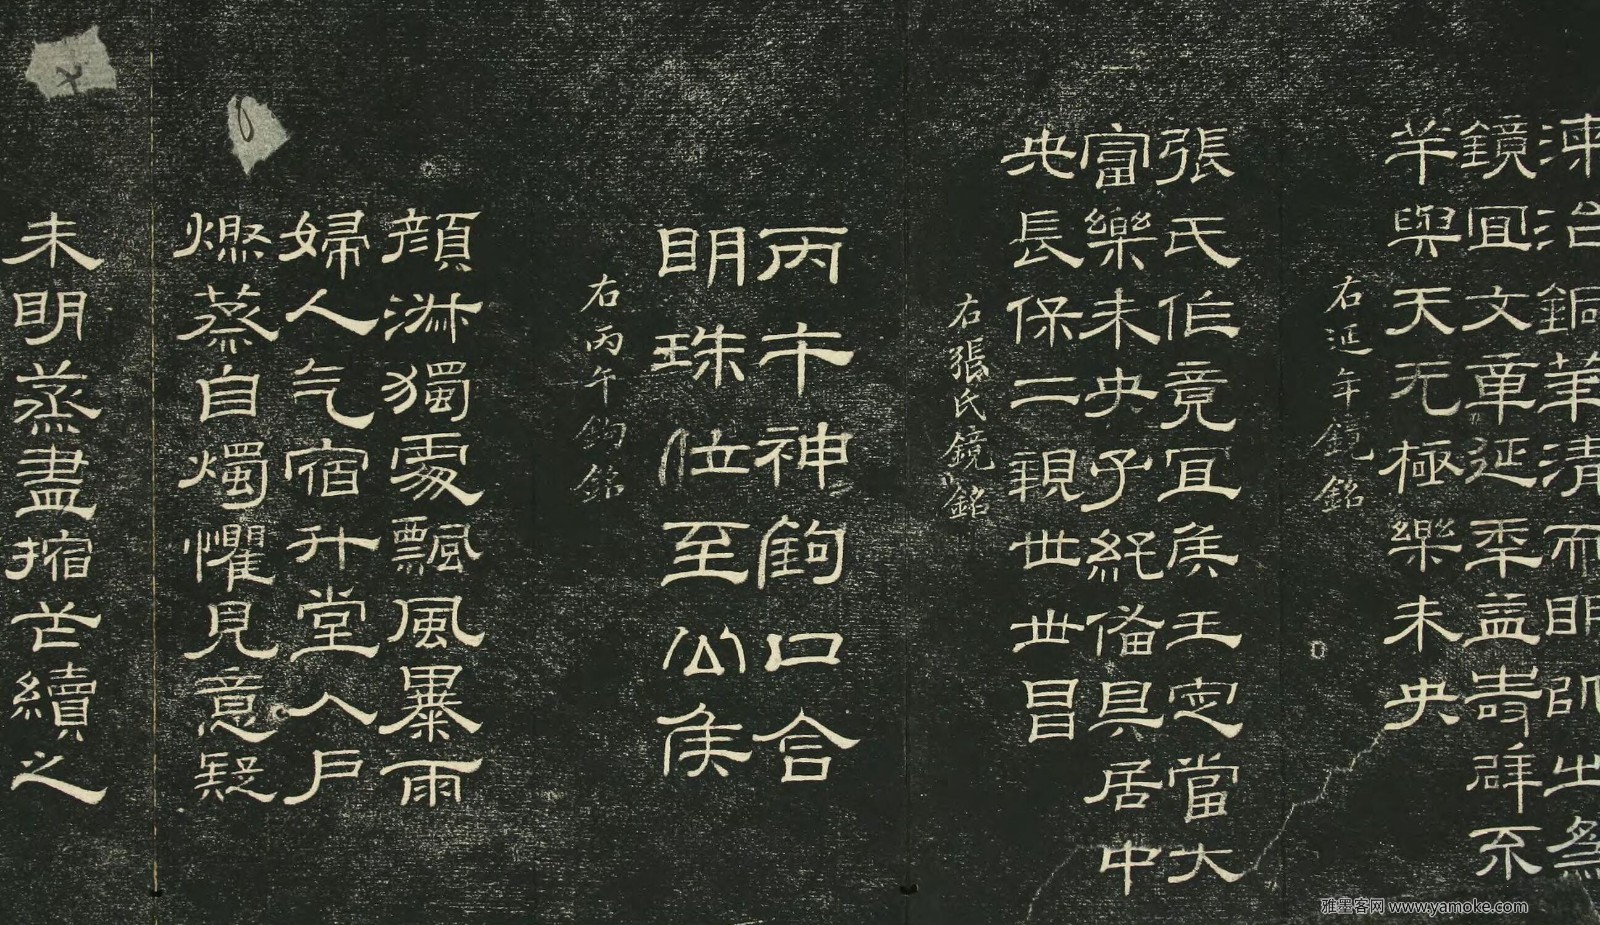 湅治銅華清而明以之為
鏡宜文章延年益壽辟不
羊與天无極樂未央
右延年鏡銘
張氏作竟宜侯王家當大
富樂未央子孫備具居中
央長保二親世世昌
右張氏鏡銘
丙午神鉤口含
明珠位至公侯
右丙午鉤銘
顏淑獨處飄風暴雨
婦人气宿升堂入戶
燃蒸自燭懼見意疑
未明蒸盡摍芒續之
雅墨客网 www.yamoke.com